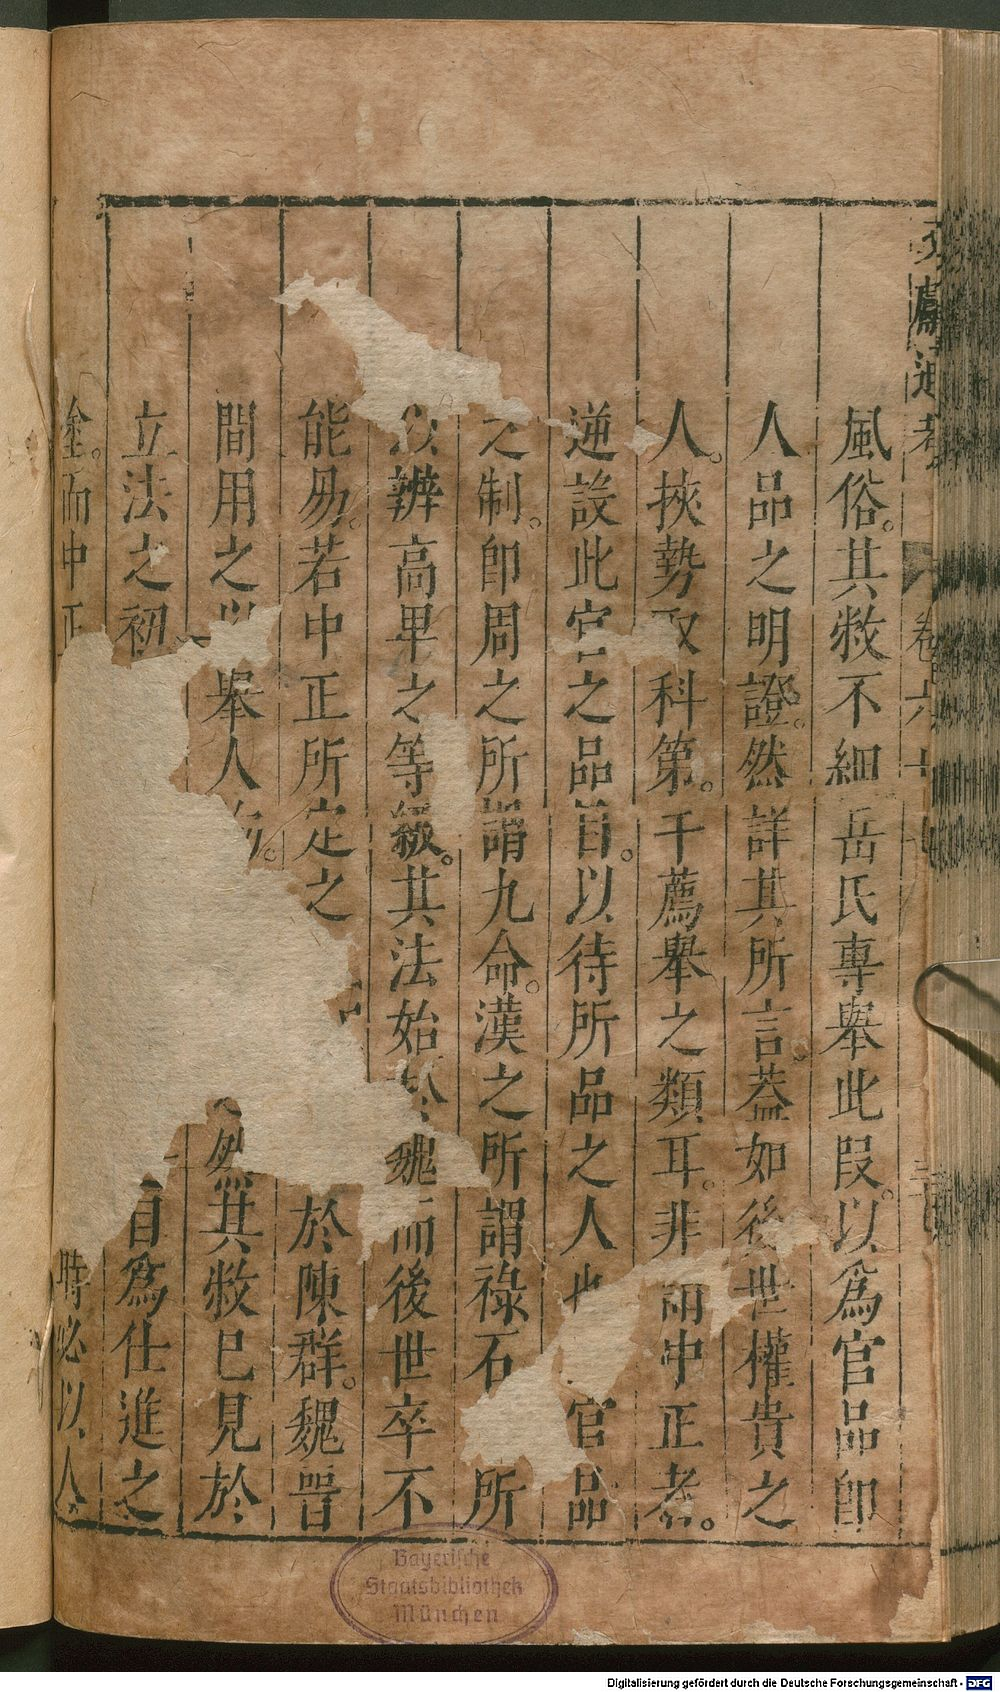 文獻通考 卷六十七
風俗。其敝不細岳氏專舉此段。以為官品即
人品之明證。然詳其所言。蓋如後世權貴之
人。挾勢取科第。干薦舉之類耳。非謂中正者。
逆設此官之品目。以待所品之人也 官品
之制。即周之所謂九命。漢之所謂祿石 所
以辨高卑之等級。其法始於魏而後世卒不
能易。若中正所定之 於陳群。魏晉
間用之以 舉人物。 然其敝已見於
立法之初 自為仕進之
塗。而中正 時必以人
Bayerische
Staatsbibliothek
München
Digitalisierung gefördert durch die Deutsche Forschungsgemeinschaft - DFG